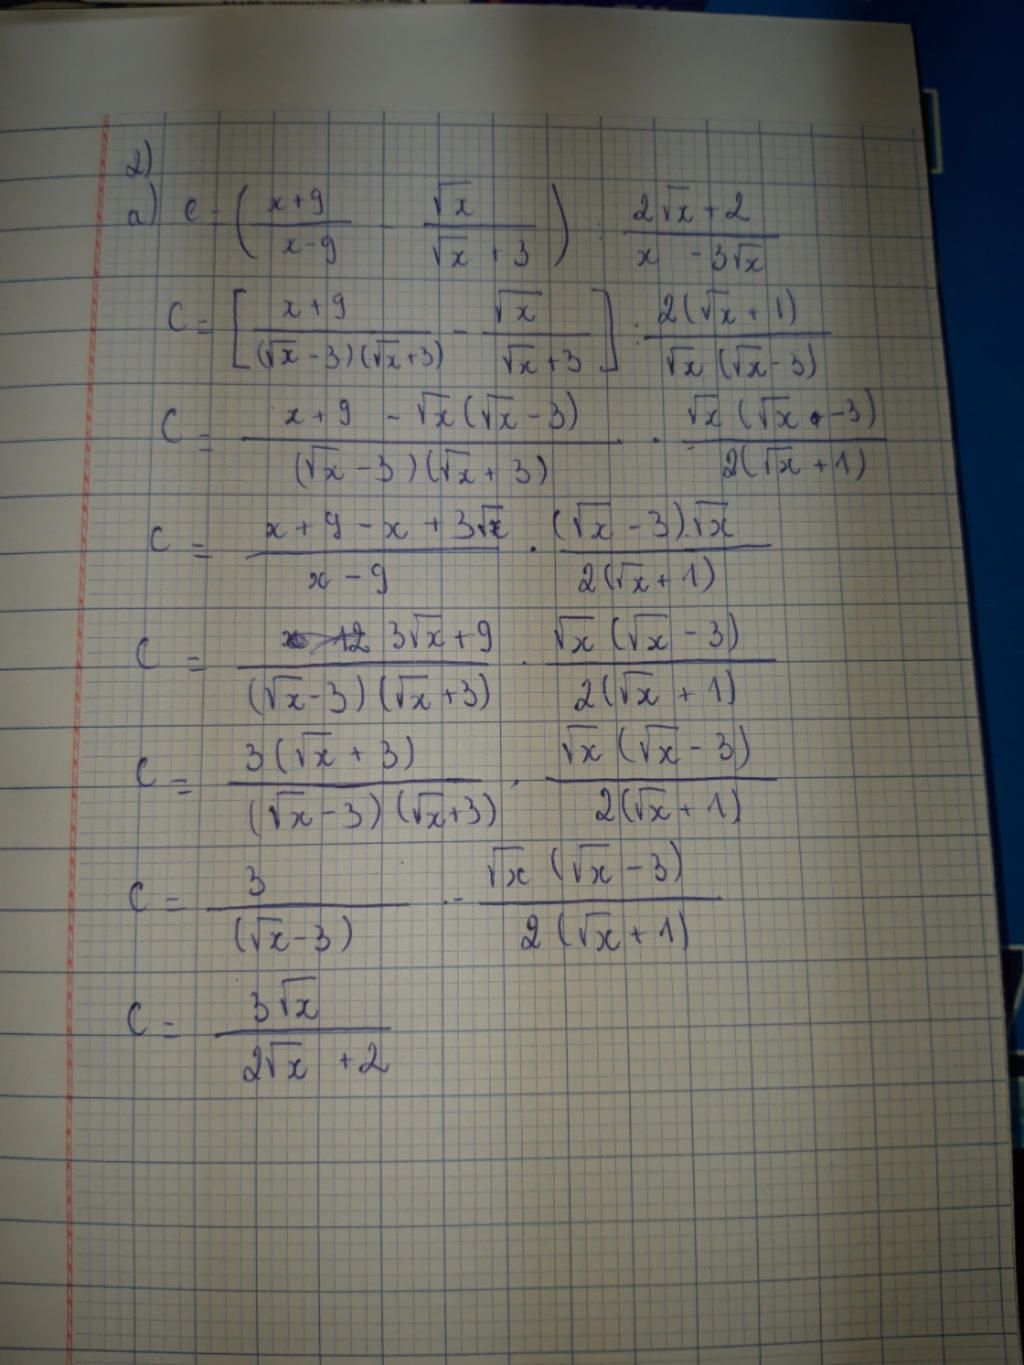 2)
a) C = ( x+9 / x-9 - √x / √x + 3 ) : 2√x + 2 / x - 3√x
C = [ x+9 / (√x - 3)(√x+3) - √x / √x+3 ] : 2(√x + 1) / √x (√x-3)
C = x+9 - √x(√x - 3) / (√x - 3)(√x + 3) . √x (√x - 3) / 2(√x + 1)
C = x + 9 - x + 3√x / x - 9 . (√x - 3).√x / 2(√x + 1)
C = 3√x + 9 / (√x-3)(√x+3) . √x (√x - 3) / 2(√x + 1)
C = 3(√x + 3) / (√x - 3)(√x+3) . √x (√x - 3) / 2(√x + 1)
C = 3 / (√x-3) . √x (√x - 3) / 2(√x + 1)
C = 3√x / 2√x + 2